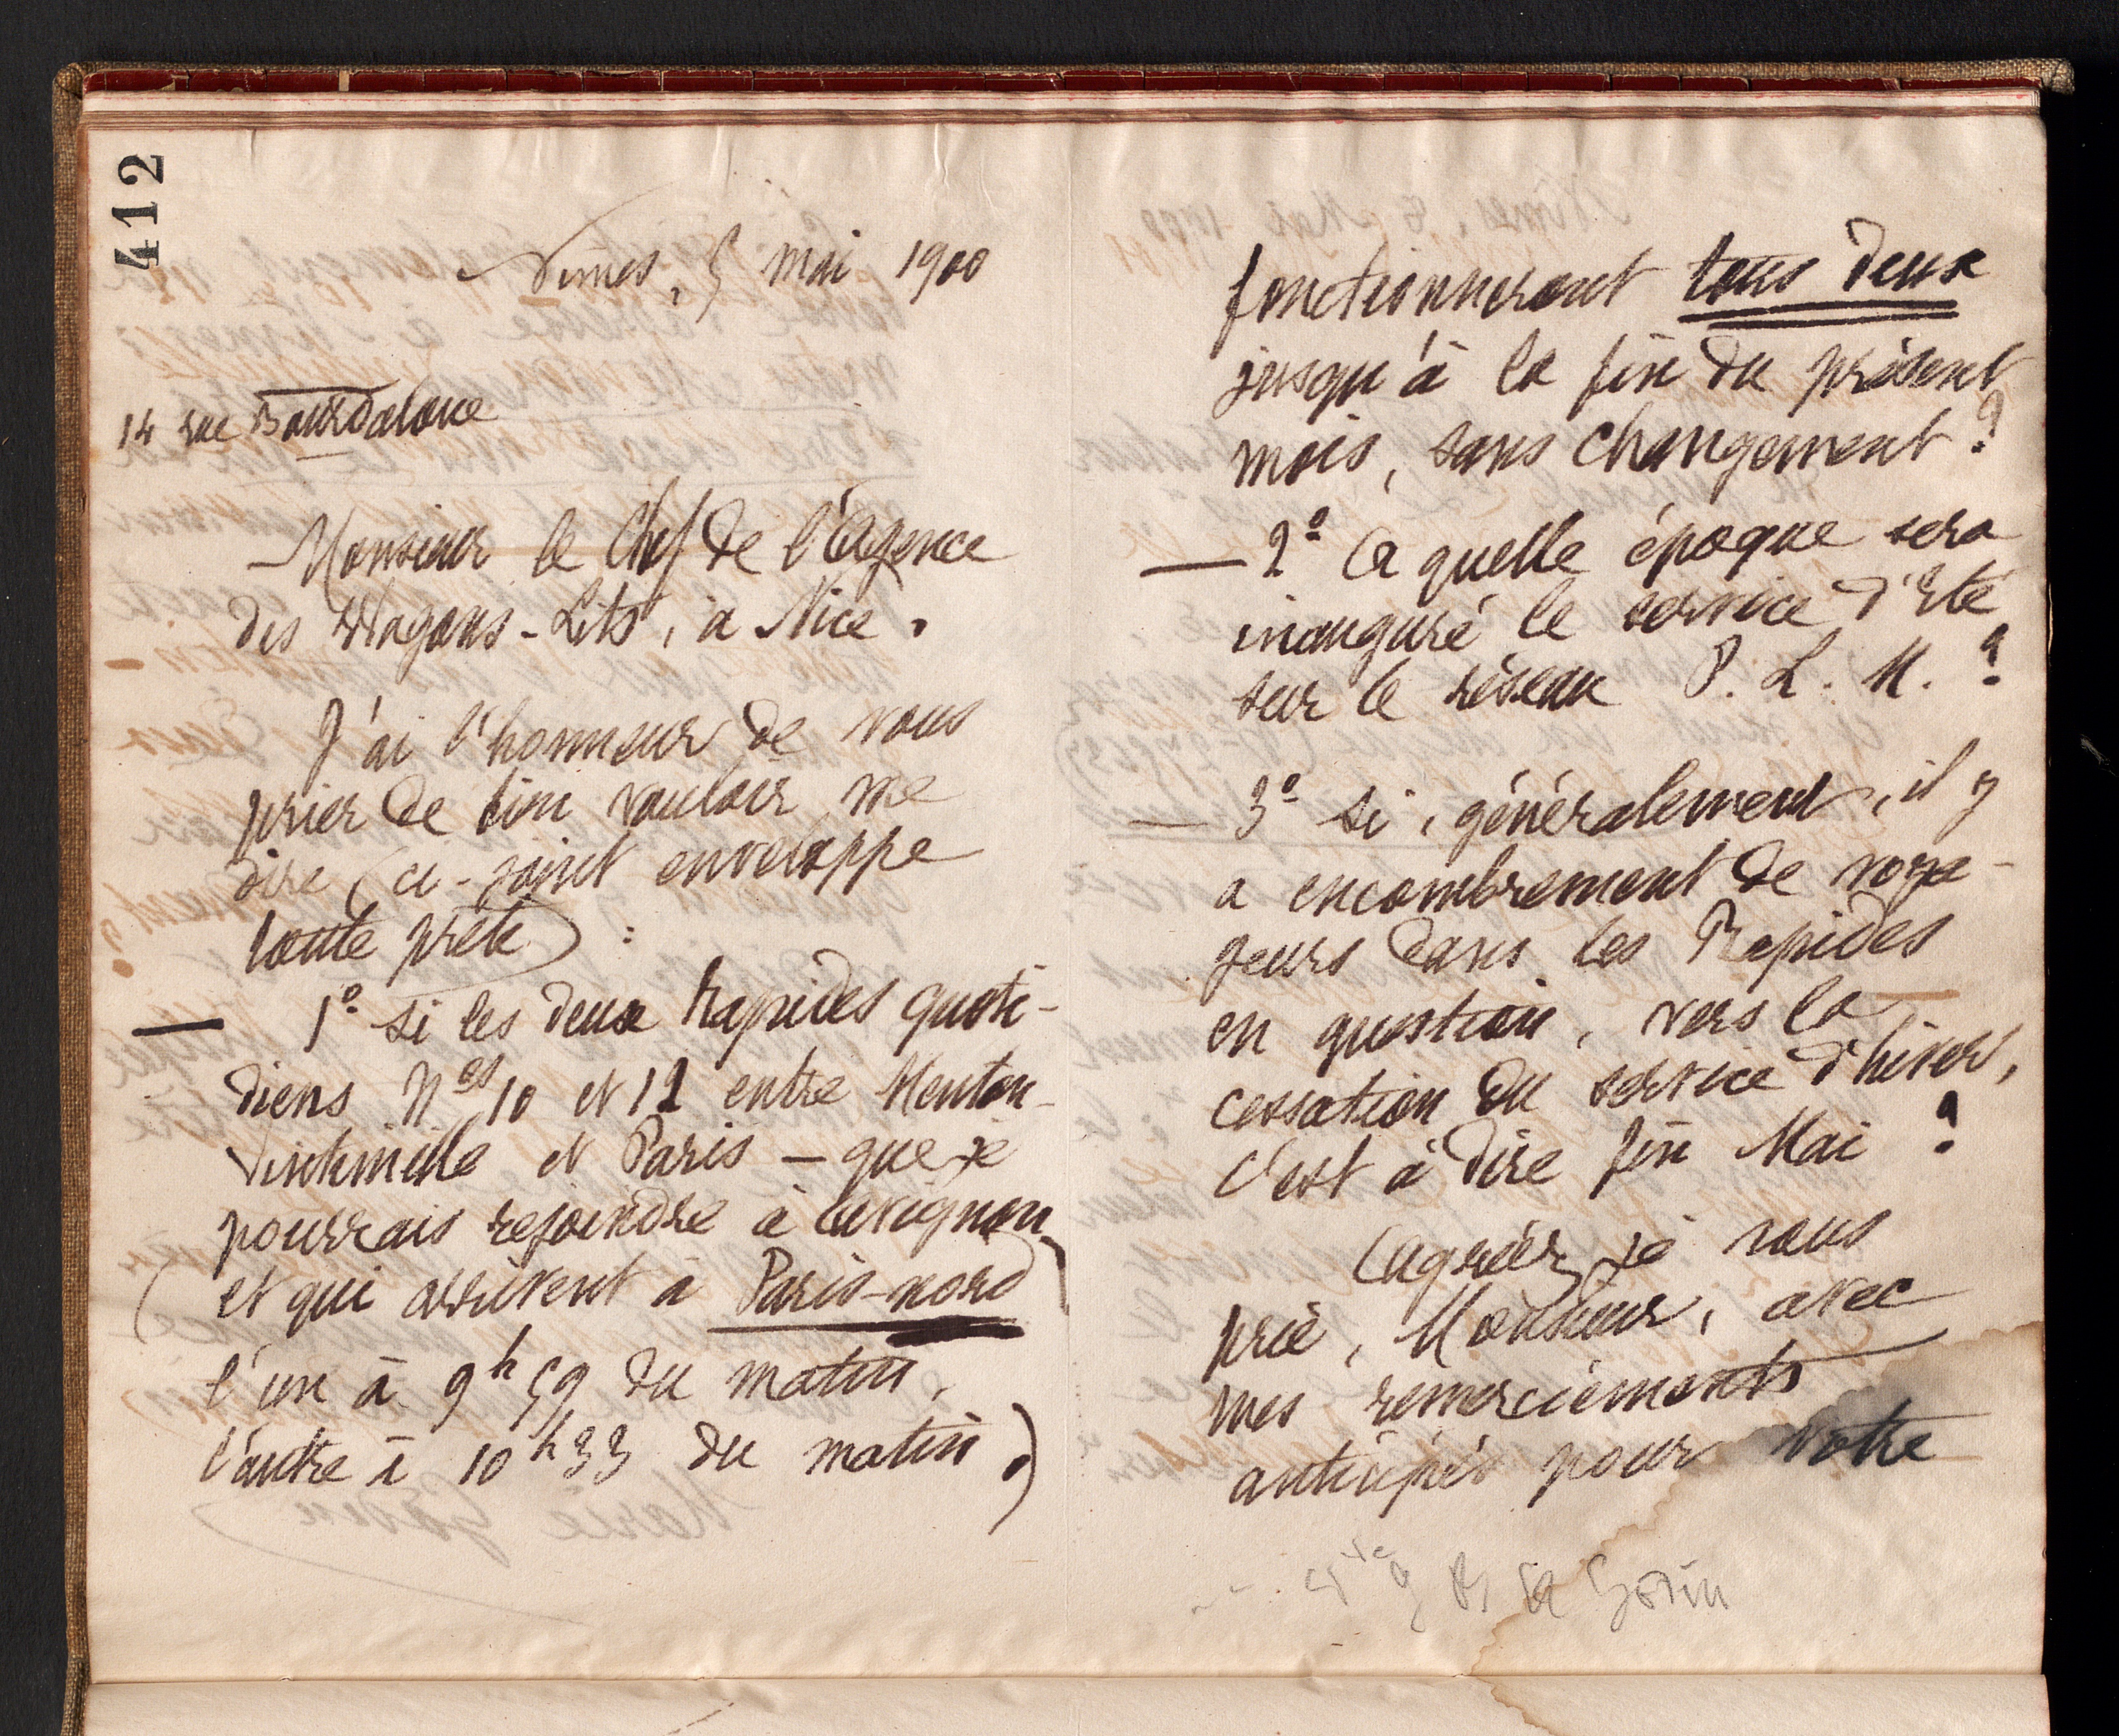 412
Nîmes, 5 mai 1900
14 rue Bourdaloue
Monsieur le Chef de l'Agence
des Wagons-Lits, à Nice.
J'ai l'honneur de vous
prier de bien vouloir me
dire (ci-joint enveloppe
toute prête) :
— 1º si les deux Rapides quoti-
diens Nos 10 et 12 entre Menton-
Vintimille et Paris — que je
pourrais rejoindre à Avignon
(et qui arrivent à Paris-nord
l'un à 9h59 du matin,
l'autre à 10h33 du matin.)
fonctionneront tous deux
jusqu'à la fin du présent
mois, sans changement ?
— 2º A quelle époque sera
inauguré le service d'Eté
sur le réseau P. L. M. ?
— 3º si, généralement, il y
a encombrement de voya-
geurs dans les Rapides
en question, vers la
cessation du service d'hiver,
c'est à dire fin Mai ?
Agréez, je vous
prie, Monsieur, avec
mes remerciements
anticipés pour votre
Godin